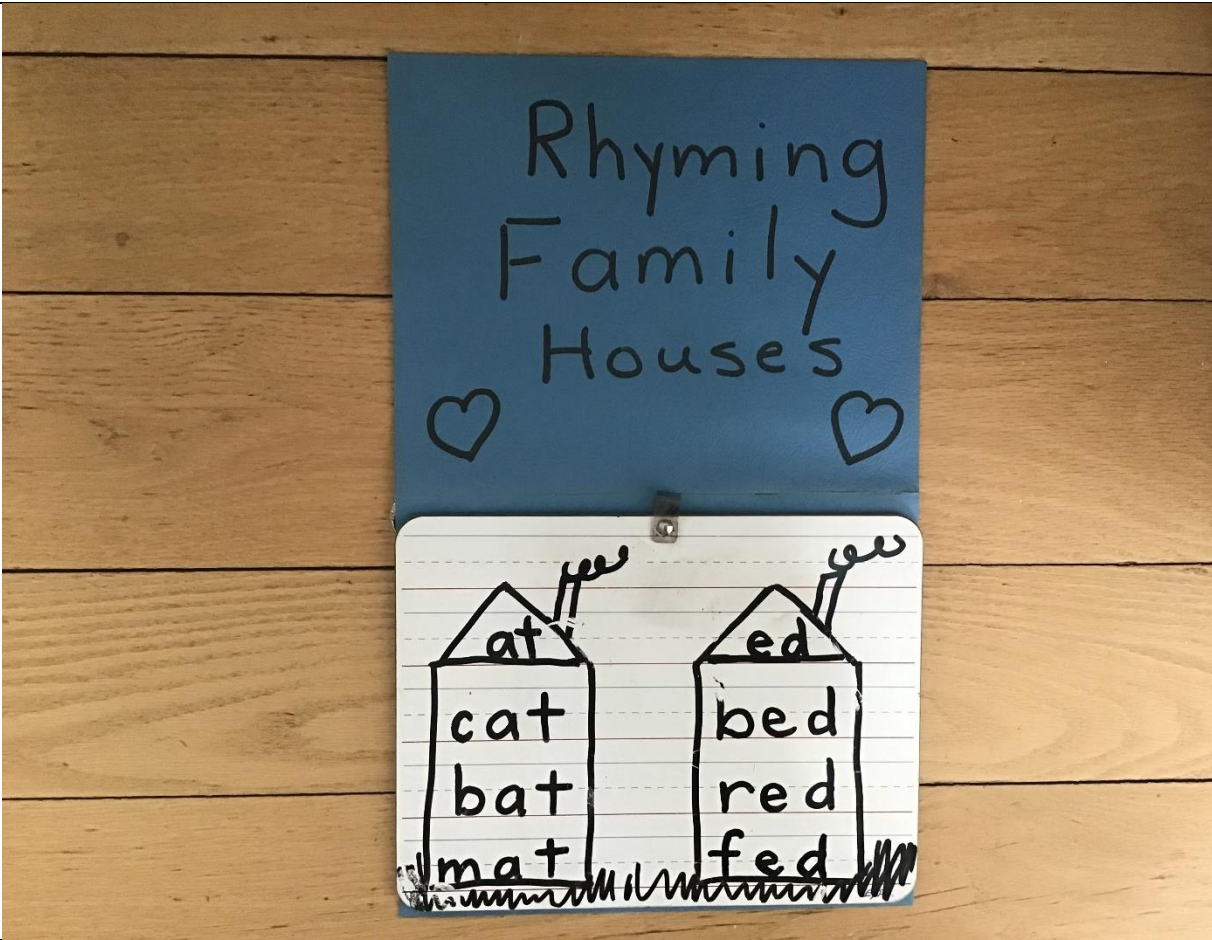 Rhyming
Family
Houses
at
cat
bat
mat
ed
bed
red
fed